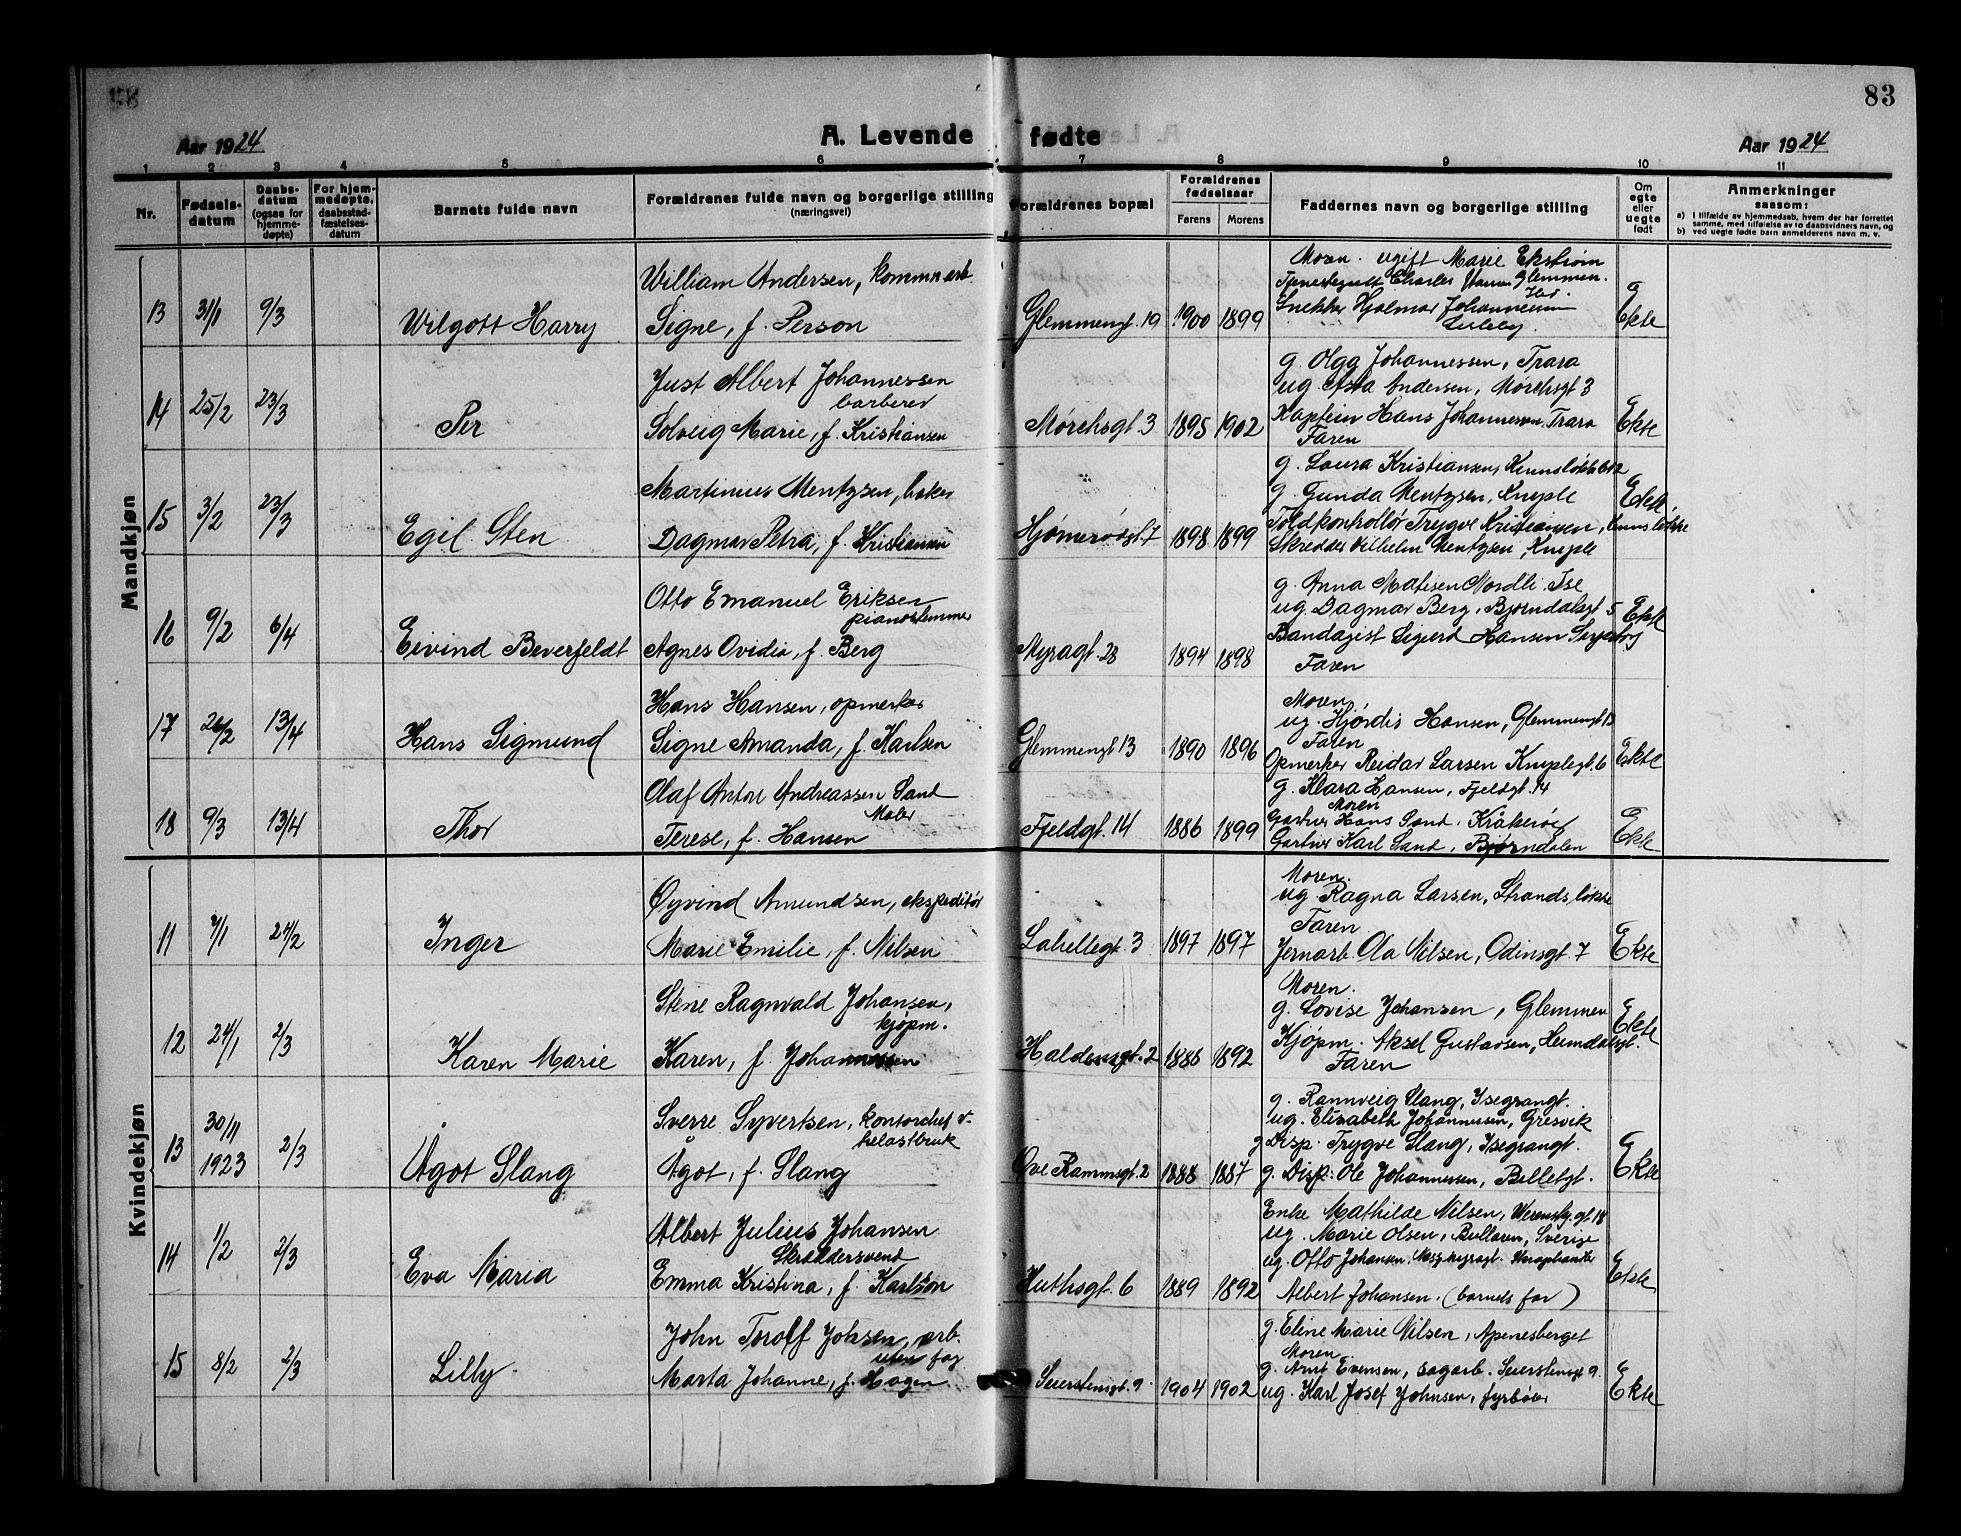 83
Aar 1924
A. Levende fødte
Aar 1924
1 2 3 4 5 6 7 8 9 10 11
Nr.
Fødselsdatum
Daabsdatum (ogsaa for hjemmedøpte)
For hjemmedøpte, daabsstadfæstelsesdatum
Barnets fulde navn
Forældrenes fulde navn og borgerlige stilling (næringsvei)
Forældrenes bopæl
Forældrenes fødselsaar
Farens Morens
Faddernes navn og borgerlige stilling
Om egte eller uegte født
Anmerkninger saasom:
a) I tilfælde av hjemmedaab, hvem der har forrettet samme, med tilføielse av to daabsvidners navn, og
b) ved uegte fødte barn anmelderens navn m. v.
Mandkjøn
13 31/1 9/3
Wilgott Harry
William Andersen, kommunearb.
Signe, f. Person
Glemmengt. 19 1900 1899
Moren. ugift Marie Ekstrøm
Charles Glemmen
Snekker Hjalmar Johannessen
Ekte
14 25/2 23/3
Per
Just Albert Johannessen
barberer
Solveig Marie, f. Kristiansen
Mørchsgt. 3 1895 1902
g. Olga Johannessen, Trara
ug. Asta Andersen, Mørchsgt 3
Kaptein Hans Johannessen Trara
Faren
Ekte
15 3/2 23/3
Egil Sten
Martinius Mentzsen, baker
Dagmar Petra, f. Kristiansen
Hjørnerødgt. 7 1898 1899
g. Laura Kristiansen,
g. Gunda Mentzsen, Kneple
Toldkontrollør Trygve Kristiansen,
Skredder Vilhelm Mentzsen, Kneple
Ekte
16 9/2 6/4
Eivind Beverfeldt
Otto Emanuel Eriksen
pianostemmer
Agnes Ovidia, f. Berg
Myragt. 28 1894 1898
g. Anna Matisen Nordli. Ise
ug. Dagmar Berg, Bjørndalsgt 5
Bandagist Sigurd Hansen
Faren
Ekte
17 26/2 13/4
Hans Sigmund
Hans Hansen, opmerker
Signe Amanda, f. Karlsen
Glemmengt 13 1890 1896
Moren
ug. Hjørdis Hansen, Glemmengt 13
Faren
Opmerker Reidar Larsen Kneplegt. 6
Ekte
18 9/3 13/4
Thor
Olaf Anton Andreassen Sand
Maler
Terese, f. Hansen
Fjeldgt. 14 1886 1899
g. Klara Hansen, Fjeldgt. 14
Moren
Gartner Hans Sand, Kråkerøy
Gartner Karl Sand, Bjørndalen
Ekte
Kvindekjøn
11 7/1 24/2
Inger
Øyvind Amundsen, ekspeditør
Marie Emilie, f. Nilsen
Labellegt. 3 1897 1897
Moren.
ug Ragna Larsen, Strandsløkke
Faren
Jernarb. Ola Nilsen, Odinsgt. 7
Ekte
12 24/1 2/3
Karen Marie
Stene Ragnvald Johansen,
kjøpm.
Karen, f. Johannessen
Haldensgt. 2 1888 1892
Moren.
g. Lovise Johansen, Glemmen
Kjøpm. Aksel Gustavsen, Heimdalsgt.
Faren
Ekte
13 30/11 1923 2/3
Ågot Slang
Sverre Syvertsen, kontorchef v.
helastbruk
Ågot, f. Slang
Ove Rammsgt. 2 1888 1887
g. Rannveig Slang, Isegrangt.
ug. Elisabeth Johannessen, Gresvik
g Disp. Trygve Slang, Isegrangt.
g. Disp. Ole Johannessen, Billetgt.
Ekte
14 1/2 2/3
Eva Maria
Albert Julius Johansen
Skræddersvend
Emma Kristina, f. Karlson
Huthsgt. 6 1889 1892
Enke Mathilde Nilsen, Werenskg. gt. 18
ug. Marie Olsen, Bullaren, Sverige
ug. Otto Johansen,
Albert Johansen. (barnets far)
Ekte
15 8/2 2/3
Lilly
John Torolf Johsen, arb.
uten fag
Marta Johanne, f. Hagen
Seierstensgt. 9 1904 1902
g. Eline Marie Nilsen, Apenesberget
Moren.
g. Arnt Evensen, sagarb. Seierstensgt 9.
ug. Karl Josef Johnsen, fyrbøter
Ekte